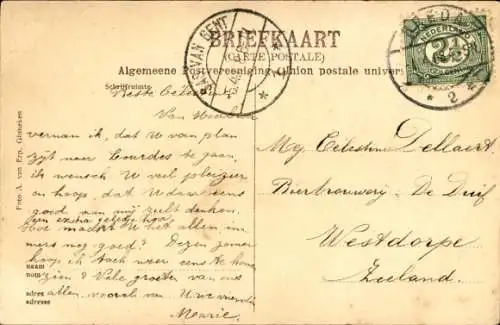 BRIEFKAART
(CARTE POSTALE)
Algemeene Postvereeniging (Union postale univers
SAS VAN GENT
BREDA
NEDERLAND
2½
2
Schrijfruimte.
Beste Celestine
Van
vernam ik, dat U van plan
zijt naar Lourdes te gaan,
ik wensch U veel pleizier
en hoop, dat U daar eens
goed aan mij zult denken,
een extra gebedje hoor
Hoe maakt U het allen, im
mers nog goed? Dezen zomer
hoop ik toch weer eens te kome
zien? Vele groeten van ons
allen vooral van Uwe vriendin
Marie.
naam
nom
adres
adresse
Mej Celestine Dellaert
Bierbrouwerij De Duif
Westdorpe
Zeeland.
Foto A. van Erp, Ginneken